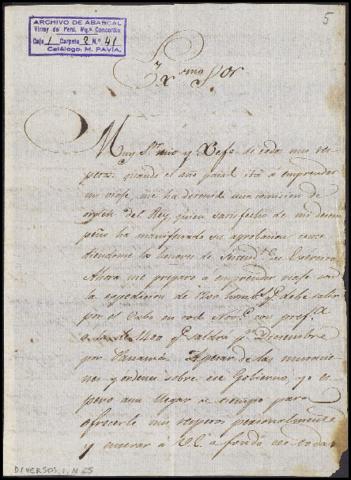 ARCHIVO DE ABASCAL
Virrey del Perú, Mqs. Concordia
Caja 1 Carpeta 2 N.º 41
Catálogo: M. PAVÍA.
5
Exmo Sor
Muy Sr. mio y Xefe de todo mi res
peto: quando el año pasado iba á emprender
mi viaje, me ha detenido una comision de
orden del Rey, quien satisfecho de mi desem
peño ha manifestado su aprobacion conce
diendome los honores de Intend.te de Exercito.
Ahora me preparo á emprender viaje con
la expedicion de homb.s q.e debe salir
por el Cabo en todo Nov.e con
de 1400 q.e saldra p.r Diciembre
por Panamá. Apesar de las
nes y ordenes sobre ese Gobierno, yo es
pero aun llegar á tiempo para
ofrecerle mis respetos personalmente
y enterar á V.E. á fondo de todas
DIVERSOS, 1, N 25